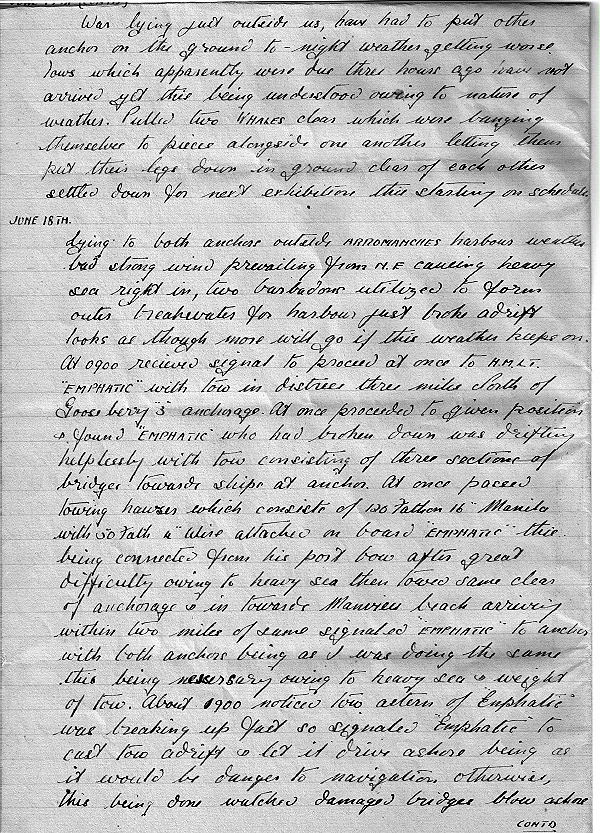 was lying just outside us, have had to put other
anchor on the ground to-night weather getting worse.
Tows which apparently were due three hours ago have not
arrived yet this being understood owing to nature of
weather. Pulled two WHALES clear which were banging
themselves to pieces alongside one another letting them
put their legs down in ground clear of each other
settled down for next exhibition this starting on schedule
JUNE 18TH.
Lying to both anchors outside ARROMANCHES harbour weather
bad strong wind prevailing from N.E causing heavy
sea right in, two barbadons utilized to form
outer breakwater for harbour just broke adrift
looks as though more will go if this weather keeps on.
At 0900 recieved signal to proceed at once to H.M.L.T.
"EMPHATIC" with tow in distress three miles North of
Gooseberry 3 anchorage. At once proceeded to given position
& found "EMPHATIC" who had broken down was drifting
helplessly with tow consisting of three sections of
bridges towards ships at anchor. At once passed
towing hawser which consists of 120 Fathom 16" Manila
with 50 Fath 4" Wire attached on board "EMPHATIC" this
being connected from his port bow after great
difficulty owing to heavy sea then towed same clear
of anchorage & in towards Manvieu beach arriving
within two miles of same signaled "EMPHATIC" to anchor
with both anchors being as I was doing the same
this being nessersary owing to heavy sea & weight
of tow. About 1900 noticed tow astern of "Emphatic"
was breaking up fast so signaled "Emphatic" to
cast tow adrift & let it drive ashore being as
it would be danger to navigation otherwise,
this being done watched damaged bridges blow ashore
CONTD